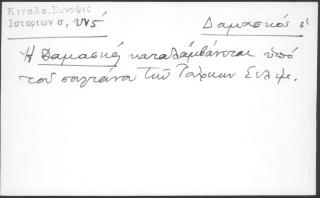 Κιγαλα, Συνοψις
Ιστοριων σ, υν5
Δαμασκός
Η Δαμασκός καταλαμβάνεται ὑπό
τοῦ σουλτάνου τῶν Τούρκων Σελιμ.